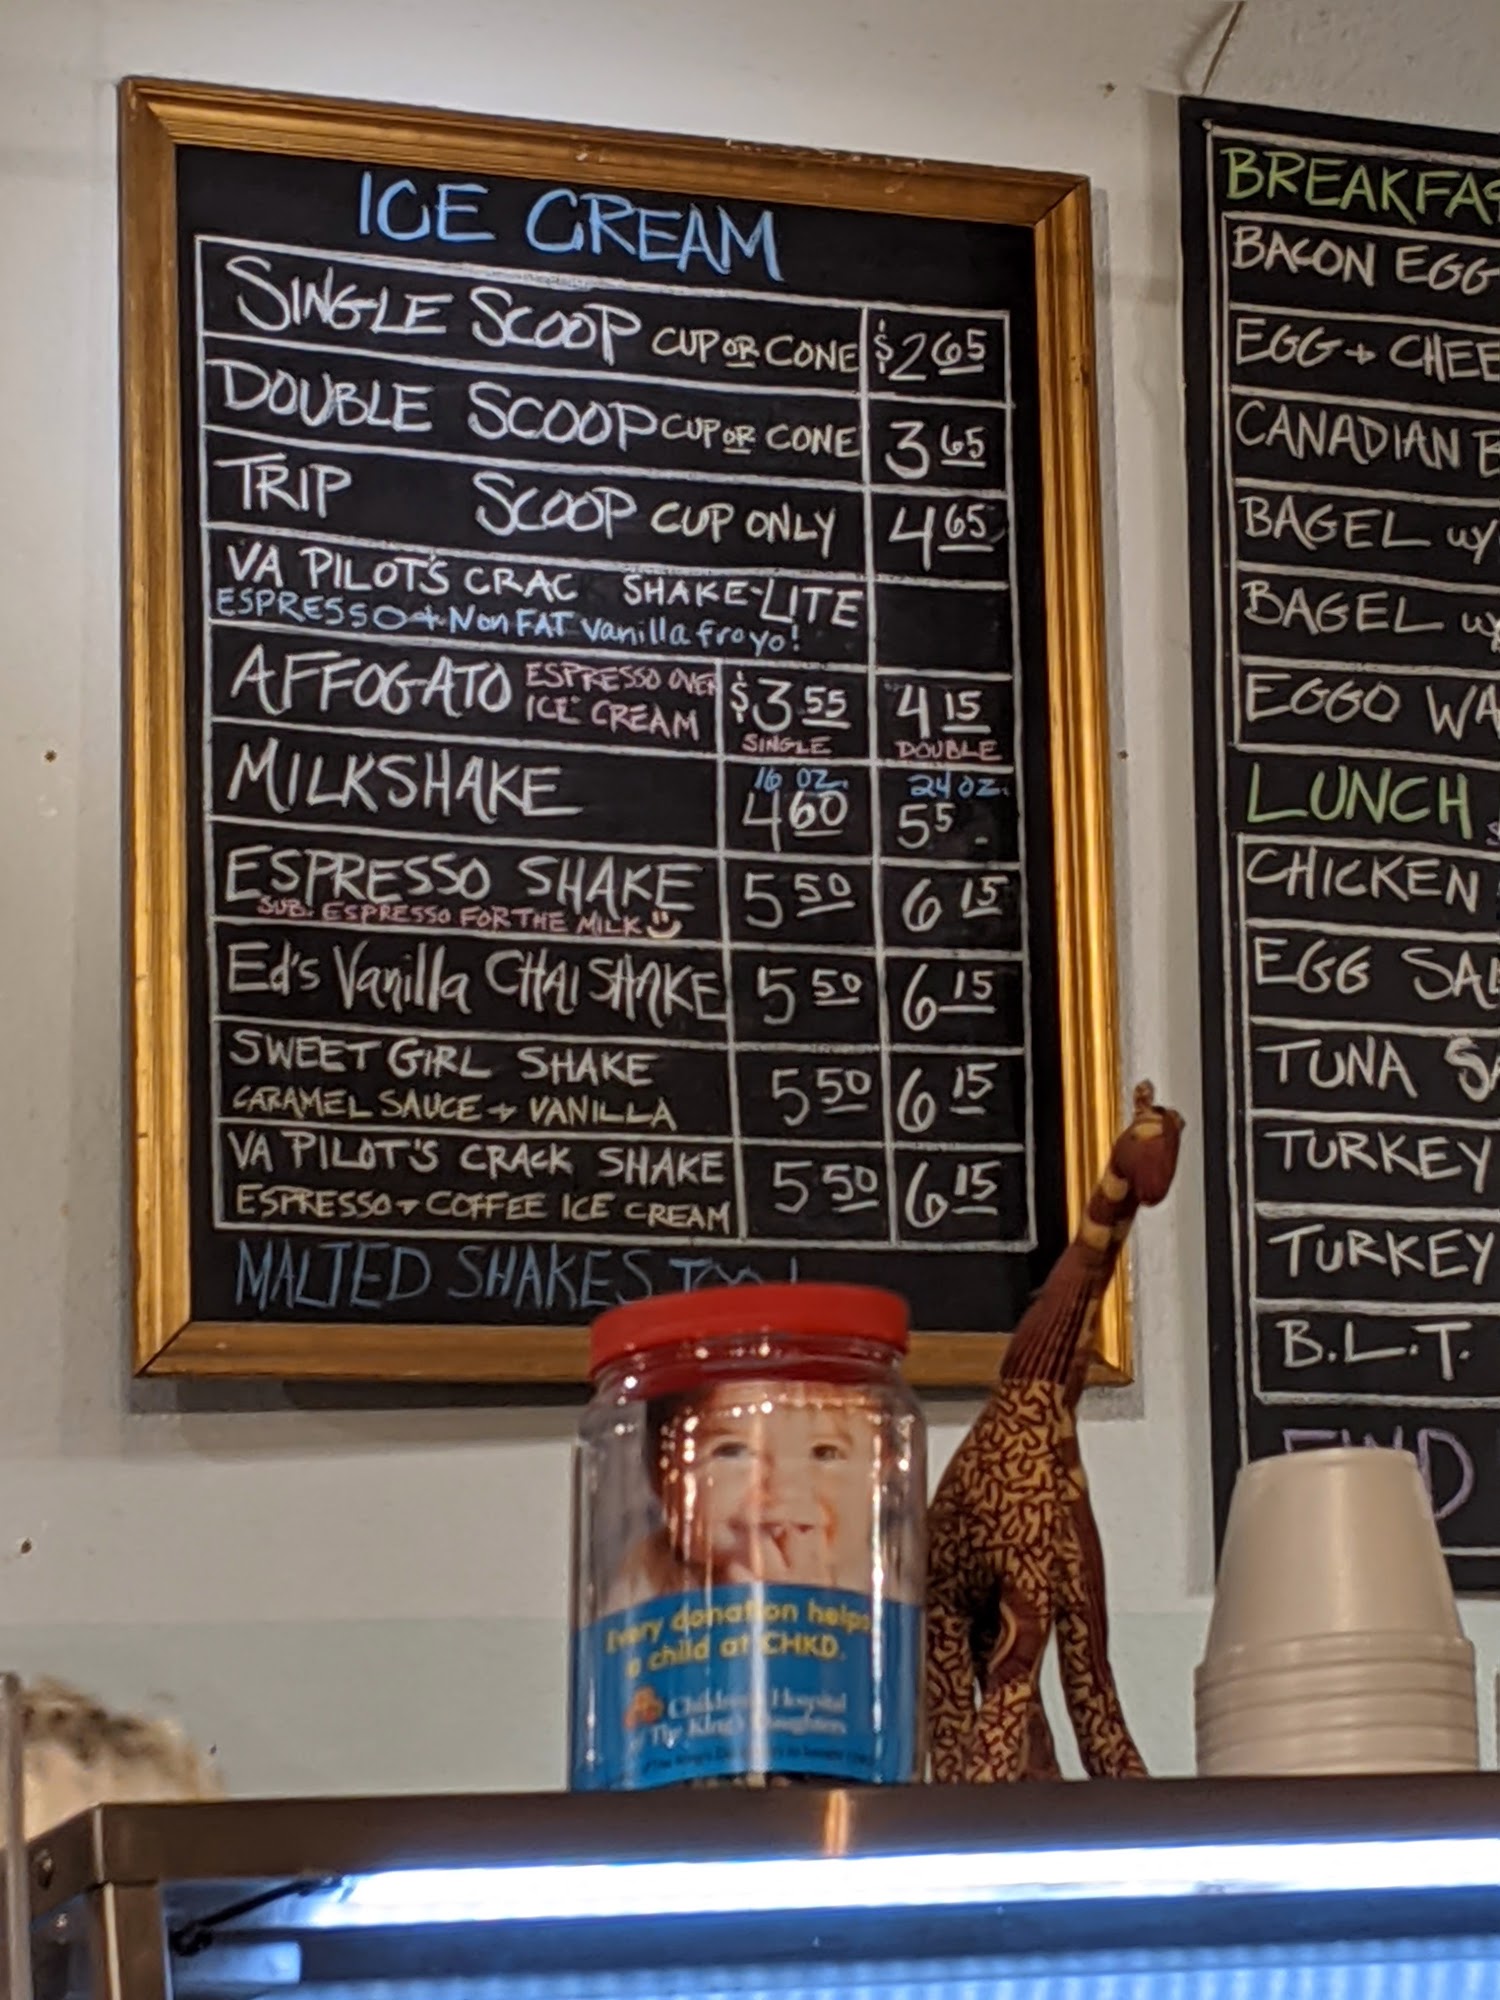 ICE CREAM
SINGLE SCOOP CUP OR CONE $2 65
DOUBLE SCOOP CUP OR CONE 3 65
TRIP SCOOP CUP ONLY 4 65
VA PILOT'S CRAC SHAKE-LITE
ESPRESSO + Non FAT vanilla froyo!
AFFOGATO ESPRESSO OVER $3 55 4 15
ICE CREAM SINGLE DOUBLE
16 OZ. 24 OZ.
MILKSHAKE 4 60 5 5
ESPRESSO SHAKE 5 50 6 15
SUB. ESPRESSO FOR THE MILK
Ed's Vanilla CHAI SHAKE 5 50 6 15
SWEET GIRL SHAKE 5 50 6 15
CARAMEL SAUCE + VANILLA
VA PILOT'S CRACK SHAKE 5 50 6 15
ESPRESSO + COFFEE ICE CREAM
MALTED SHAKES TOO!
BREAKFAS
BACON EGG
EGG + CHEE
CANADIAN B
BAGEL w/
BAGEL w/
EGGO WA
LUNCH
CHICKEN
EGG SAL
TUNA SA
TURKEY
TURKEY
B.L.T.
Every donation helps
a child at CHKD.
Children's Hospital
of The King's Daughters